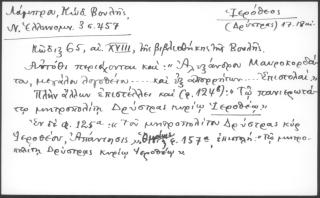 Λάμπρου, Κώδ. Βουλῆς,
Ν. Ἑλληνομν. 3 σ. 457
Ἱερόθεος
(Δρύστρας) 17.18αἰ.
Κώδιξ 65, αἰ. XVIII, τῆς βιβλιοθήκης τῆς Βουλῆς.
Αὐτόθι περιέχονται καί: "Ἀλεξάνδρου Μαυροκορδά-
του, μεγάλου λογοθέτου ..... καὶ ἐξ ἀπορρήτων ... Ἐπιστολαί".
Πλὴν ἄλλων ἐπιστέλλει καὶ (φ. 124β): "Τῷ πανιερωτά-
τῳ μητροπολίτῃ Δρύστρας κυρίῳ Ἱεροθέῳ"
Ἐν δὲ φ. 125α: "Τοῦ μητροπολίτου Δρύστρας κὺρ
Ἱεροθέου, Ἀπάντησις" φ. 157α, ἐπιστολή: "Τῷ μητρο-
πολίτῃ Δρύστρας κυρίῳ Ἱεροθέῳ"